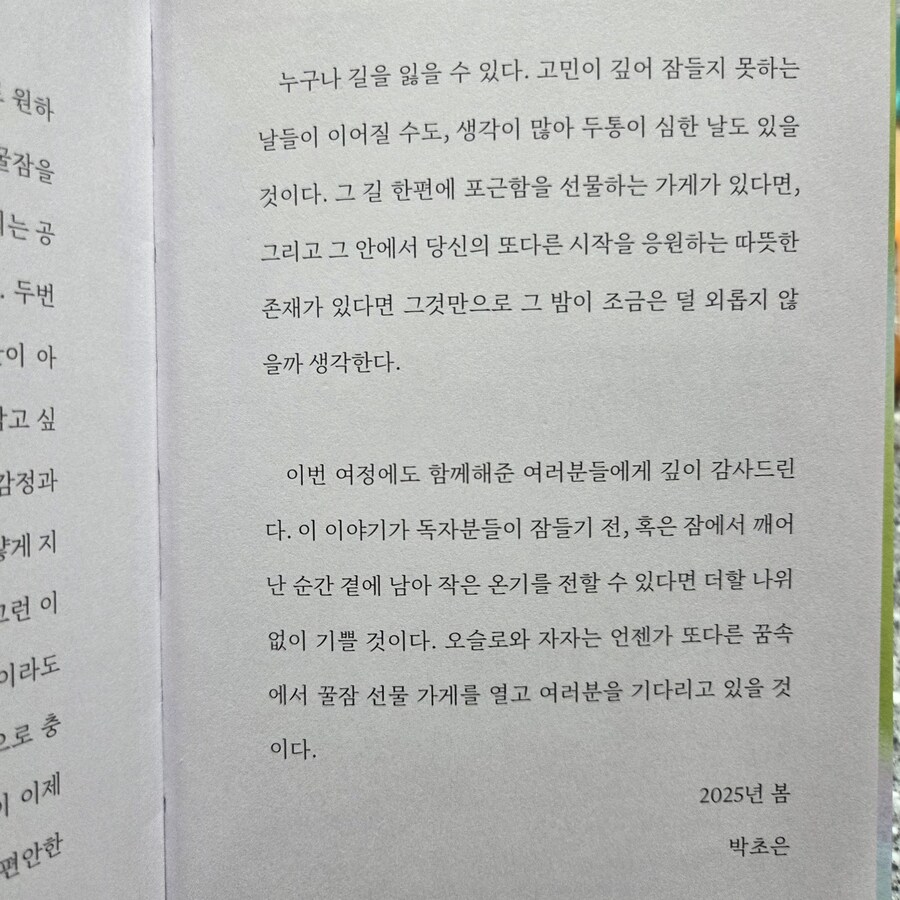 원하
꿀잠을
는 공
두번
이 아
고 싶
감정과
게 지
그런 이
이라도
으로 충
이 이제
편안한
누구나 길을 잃을 수 있다. 고민이 깊어 잠들지 못하는
날들이 이어질 수도, 생각이 많아 두통이 심한 날도 있을
것이다. 그 길 한편에 포근함을 선물하는 가게가 있다면,
그리고 그 안에서 당신의 또다른 시작을 응원하는 따뜻한
존재가 있다면 그것만으로 그 밤이 조금은 덜 외롭지 않
을까 생각한다.
이번 여정에도 함께해준 여러분들에게 깊이 감사드린
다. 이 이야기가 독자분들이 잠들기 전, 혹은 잠에서 깨어
난 순간 곁에 남아 작은 온기를 전할 수 있다면 더할 나위
없이 기쁠 것이다. 오슬로와 자자는 언젠가 또다른 꿈속
에서 꿀잠 선물 가게를 열고 여러분을 기다리고 있을 것
이다.
2025년 봄
박초은